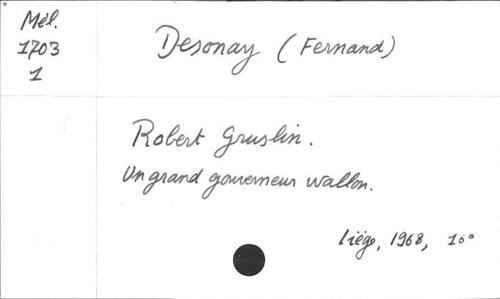 Mél.
1703
1
Desonay (Fernand)
Robert Gruslin.
Un grand gouverneur wallon.
Liége, 1968, 16°